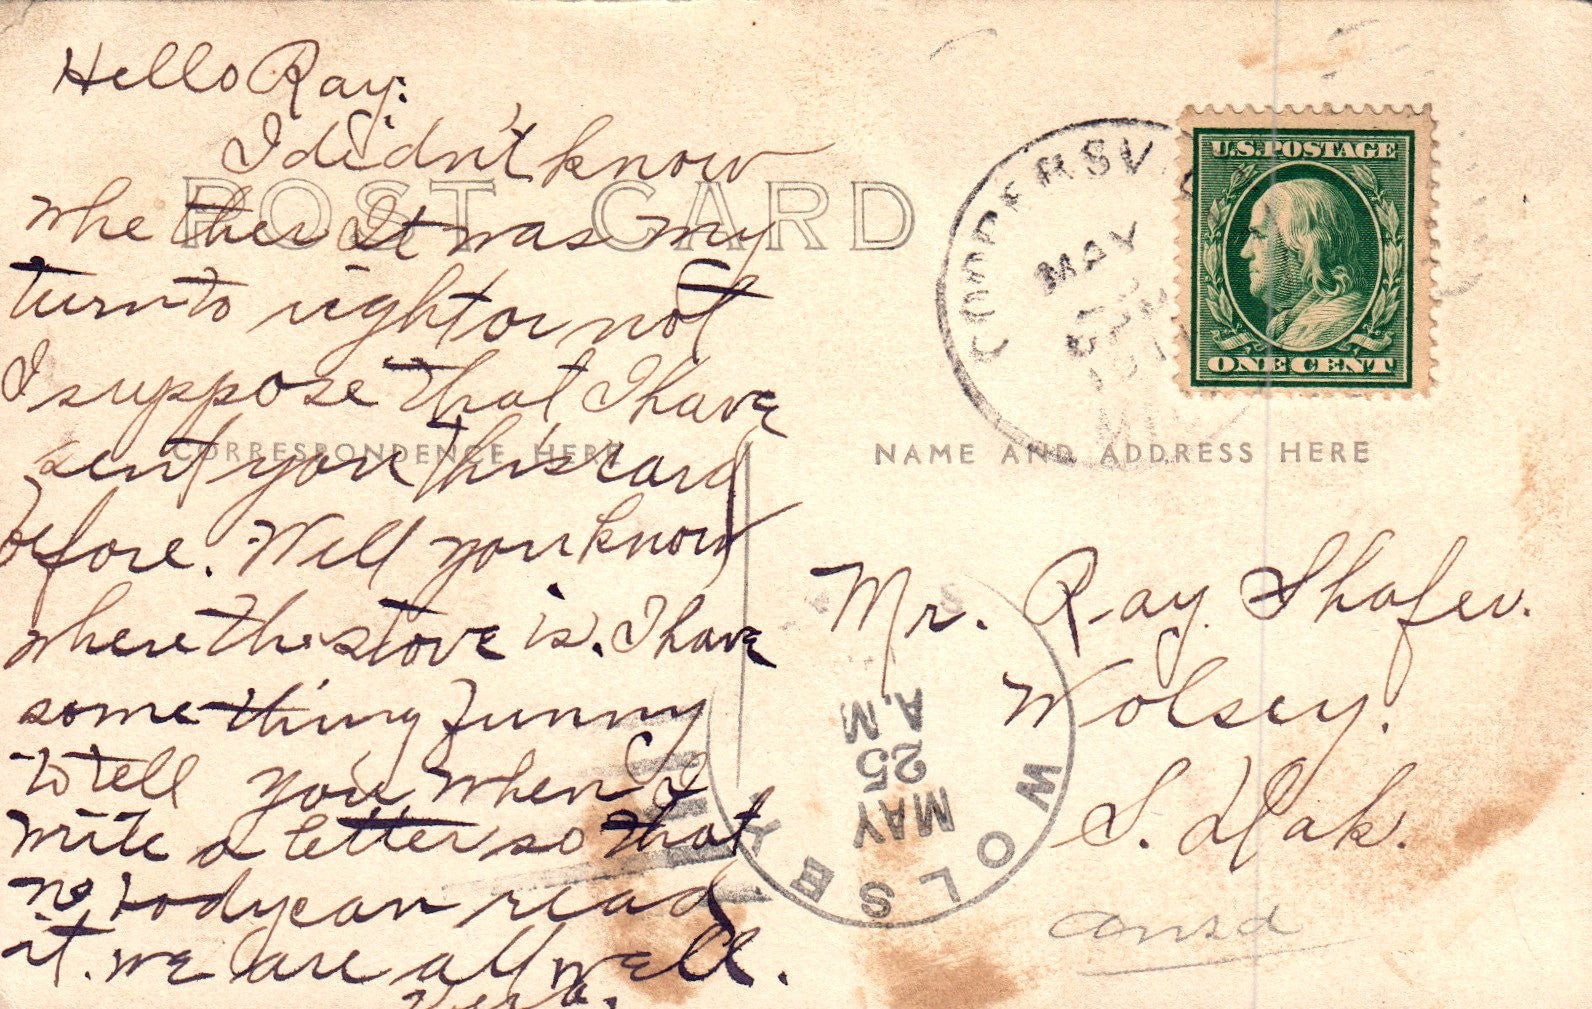 Hello Ray:
I didn't know
whether It was my
turn to right or not
I suppose that I have
sent you this card
before. Well you know
where the stove is. I have
something funny
to tell you when I
write a letter so that
nobody can read
it. we are all well.
Vera.
POST CARD
CORRESPONDENCE HERE
NAME AND ADDRESS HERE
COOPERSV
MAY
U.S. POSTAGE
ONE CENT
Mr. Ray Shafer.
Wolsey.
S. Dak.
WOLSEY
MAY
25
A.M